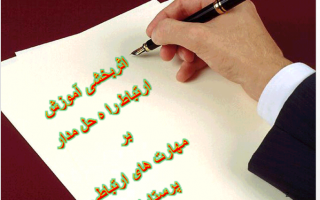 اثربخشی آموزش
ارتباط راه حل مدار
بر
مهارت های ارتباط